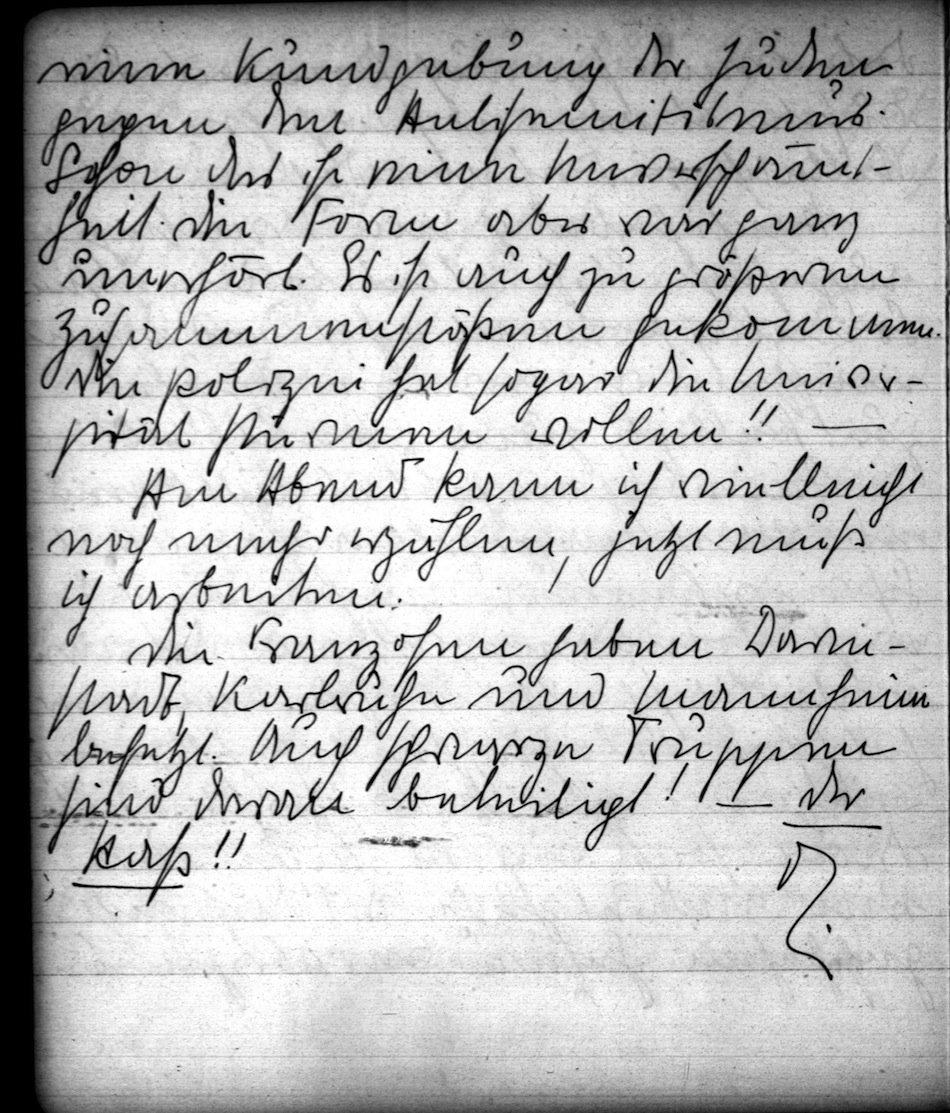 einer Kundgebung der Juden
gegen den Antisemitismus.
Schon das ist eine Unverschämt-
heit. die Form aber war ganz
unerhört. Es ist auch zu größeren
Zusammenstößen gekommen.
Die Polizei hat sogar die Univer-
sität stürmen wollen!! —
Am Abend kann ich vielleicht
noch mehr erzählen, jetzt muß
ich arbeiten.
Die Franzosen haben Darm-
stadt, Karlsruhe und Mannheim
besetzt. Auch schwarze Truppen
sind daran beteiligt! — Der
Haß!!